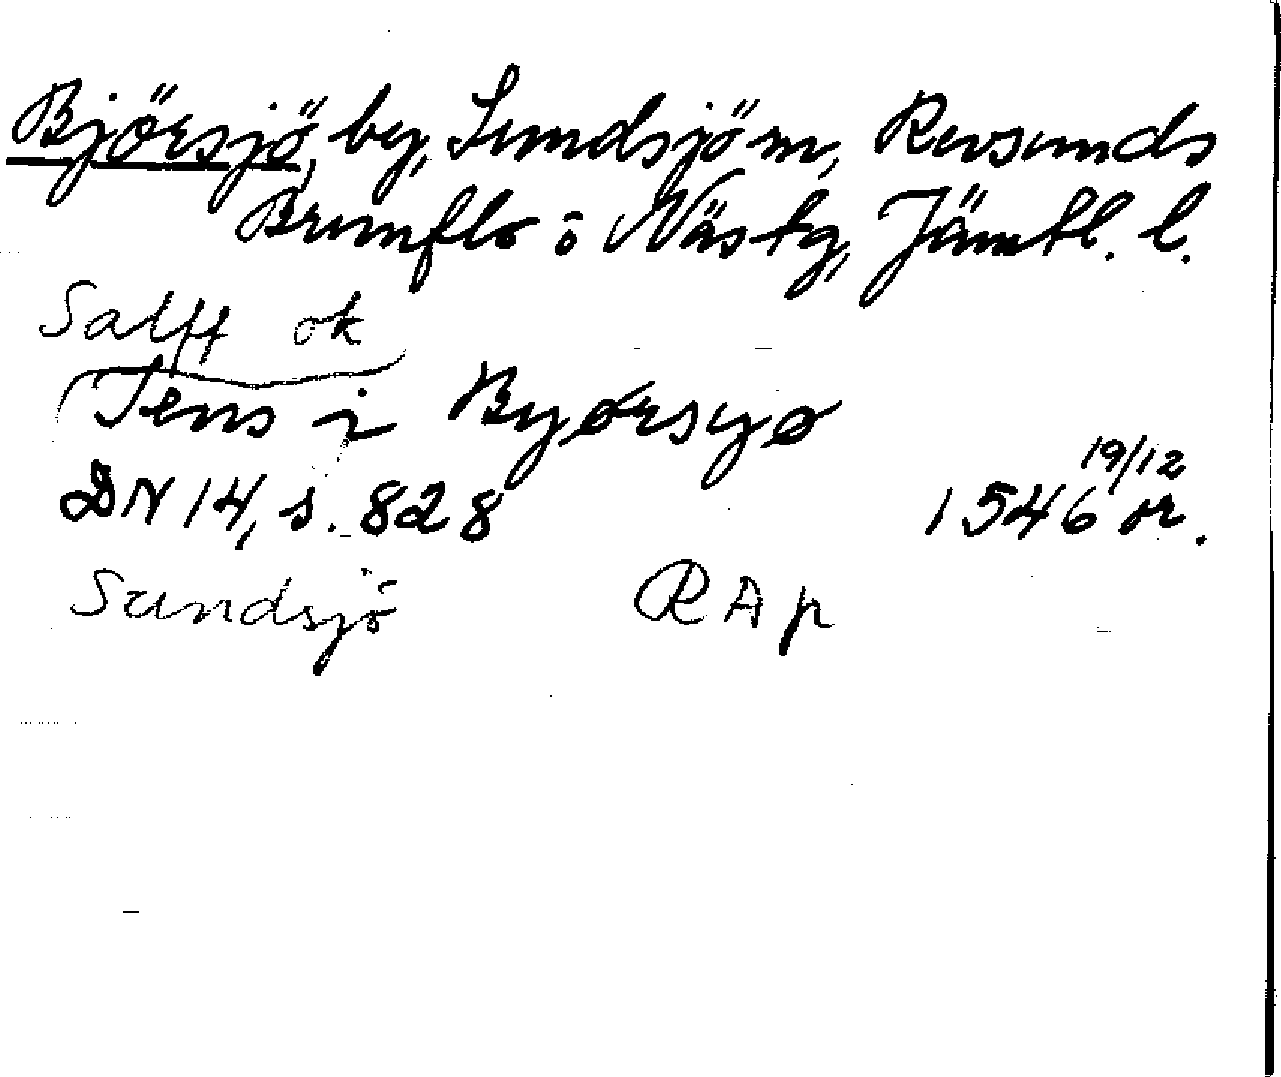 Björsjö, by, Sundsjö sn, Revsunds
Brunflo o Näs tg, Jämtl. l.
Salff ok
Jens i Byørsyø
19/12
DN 14, s. 828 1546 or.
Sundsjö RAp